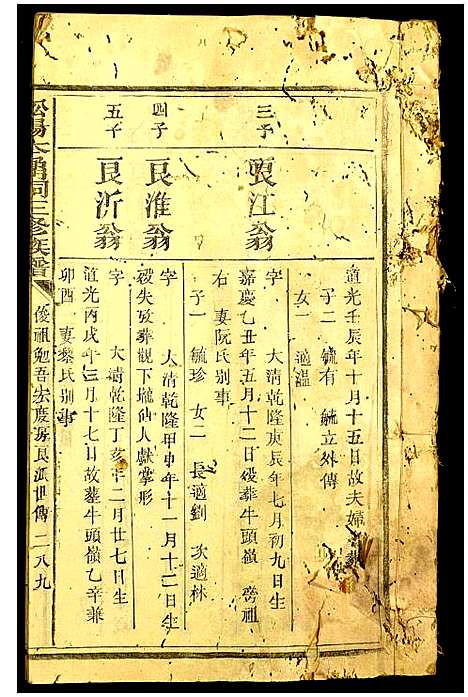 道光壬辰年十月十五日故夫婦
子二 毓有 毓立外傳
女一 適溫
三子
良江翁
字 大清乾隆庚辰年七月初九日生
嘉慶乙丑年五月十二日歿葬牛頭嶺 旁祖
右 妻阮氏别事
子一 毓珍 女二 長適劉 次適林
四子
良淮翁
字 大清乾隆甲申年十一月十二日生
歿失攷葬觀下壠仙人獻掌形
五子
良沂翁
字 大清乾隆丁亥年二月廿七日生
道光丙戌年三月十七日故葬牛頭嶺乙辛兼
卯酉 妻黎氏别事
松陽 祠三修族譜
俊祖勉吾宏慶房良派世傳 二八九